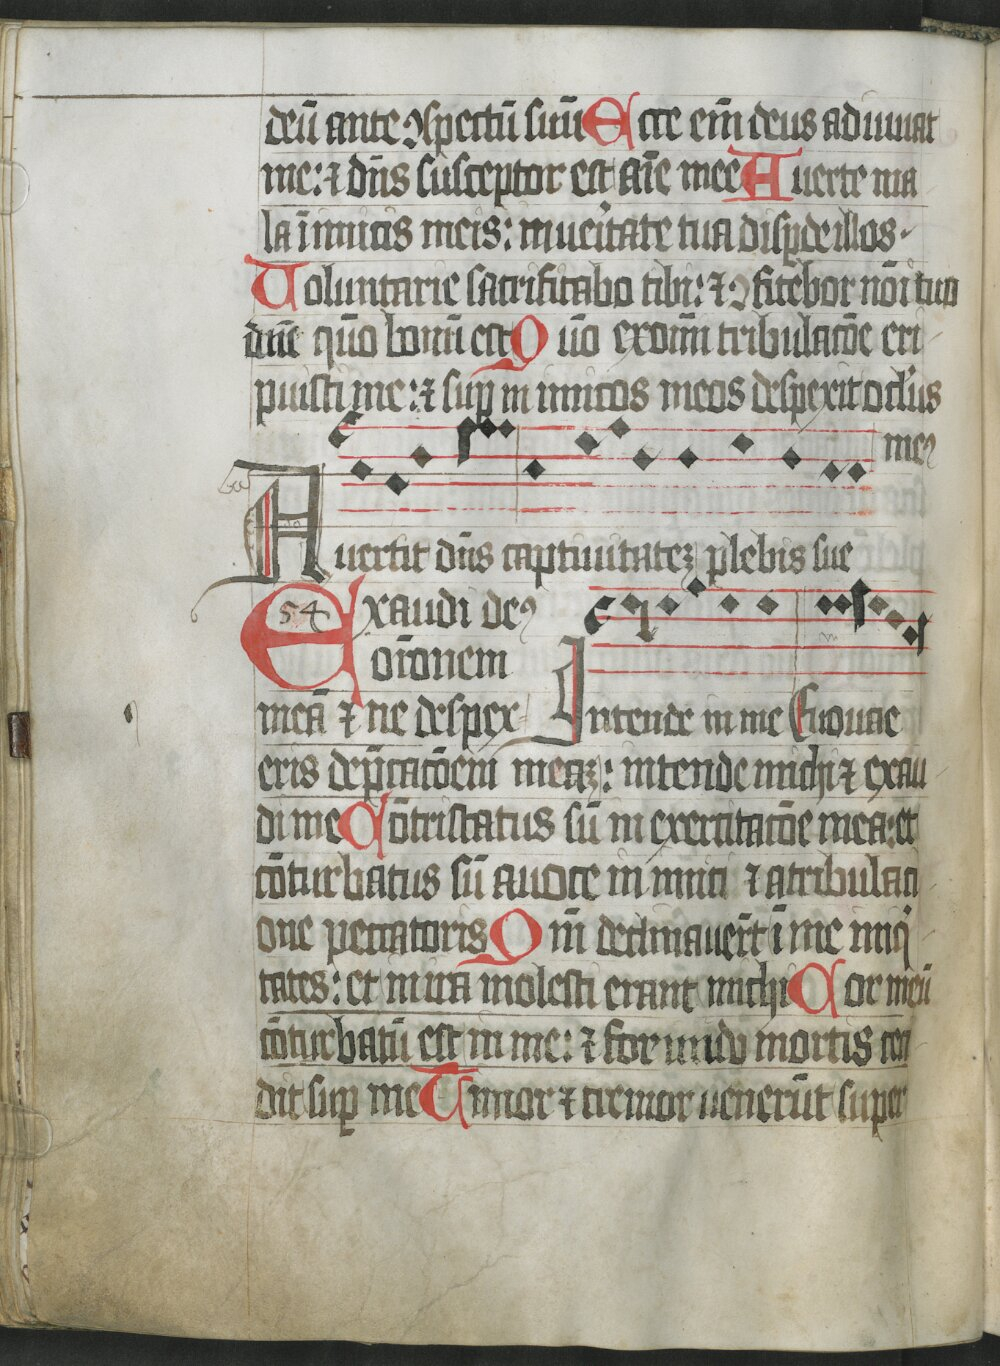 deū ante ↄspectū suū Ecce em̄ deus adiuuat
me: ⁊ dn̄s susceptor est aīe mee Auerte ma
la īimicis meis: in ueritate tua disꝑde illos
Uoluntarie sacrificabo tibi: ⁊ ↄfitebor nōi tuo
dn̄e qūo bonū est Qūo ex oīm tribulatōe eri
puisti me: ⁊ suꝑ inimicos meos despexit oclus
meꝰ
Auertit dn̄s captiuitateꝫ plebis sue
54
Exaudi deꝰ
orōnem
meā ⁊ ne despex
Intende in me Euouae
eris dep̄catōem meaꝫ: intende michi ⁊ exau
di me Cōtristatus sū in exercitatōe mea: et
cōturbatus sū a uoce inimici ⁊ a tribulati
one peccatoris Qm̄ declinauer̄t ī me iniq̄
tates: et in ira molesti erant michi Cor meū
cōturbatū est in me: ⁊ formido mortis ceci
dit suꝑ me Timor ⁊ tremor uenerūt super